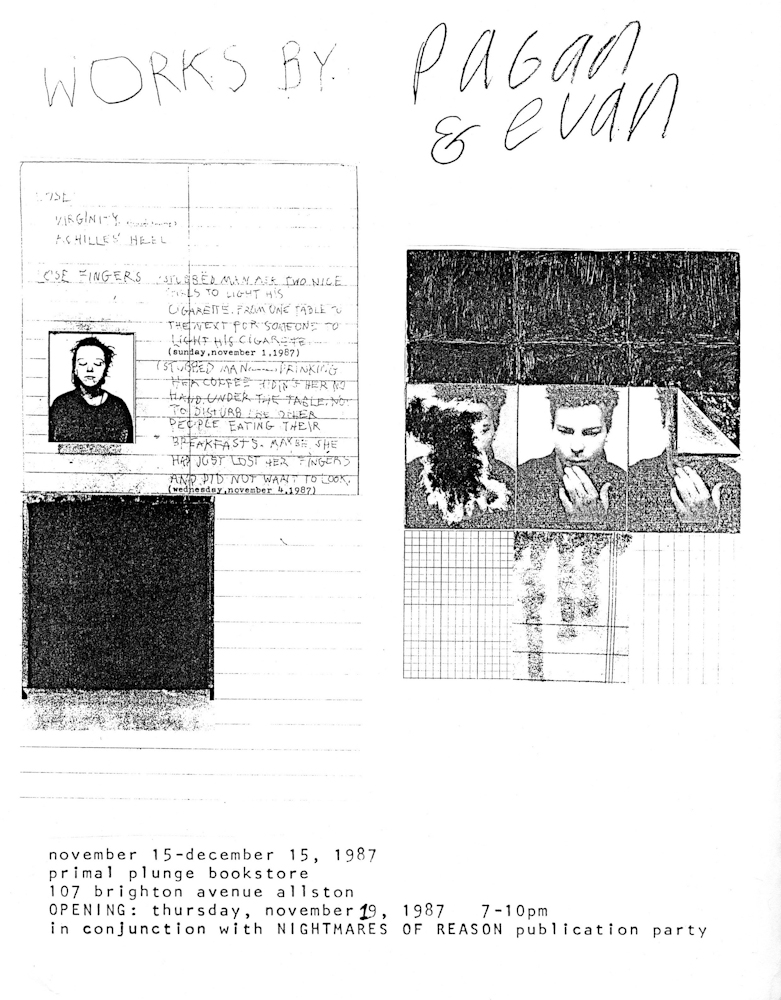 WORKS BY
PAGAN
& EVAN
VIRGINITY
ACHILLES' HEEL
FINGERS
STUBBED MAN ASK TWO NICE
GIRLS TO LIGHT HIS
CIGARETTE. FROM ONE TABLE TO
THE NEXT FOR SOMEONE TO
LIGHT HIS CIGARETTE.
(sunday,november 1,1987)
STUBBED MAN DRINKING
HER COFFEE HIDING HER NO
HAND UNDER THE TABLE. NOT
TO DISTURB THE OTHER
PEOPLE EATING THEIR
BREAKFASTS. MAYBE SHE
HAD JUST LOST HER FINGERS
AND DID NOT WANT TO LOOK.
(wednesday,november 4,1987)
november 15-december 15, 1987
primal plunge bookstore
107 brighton avenue allston
OPENING: thursday, november 19, 1987 7-10pm
in conjunction with NIGHTMARES OF REASON publication party